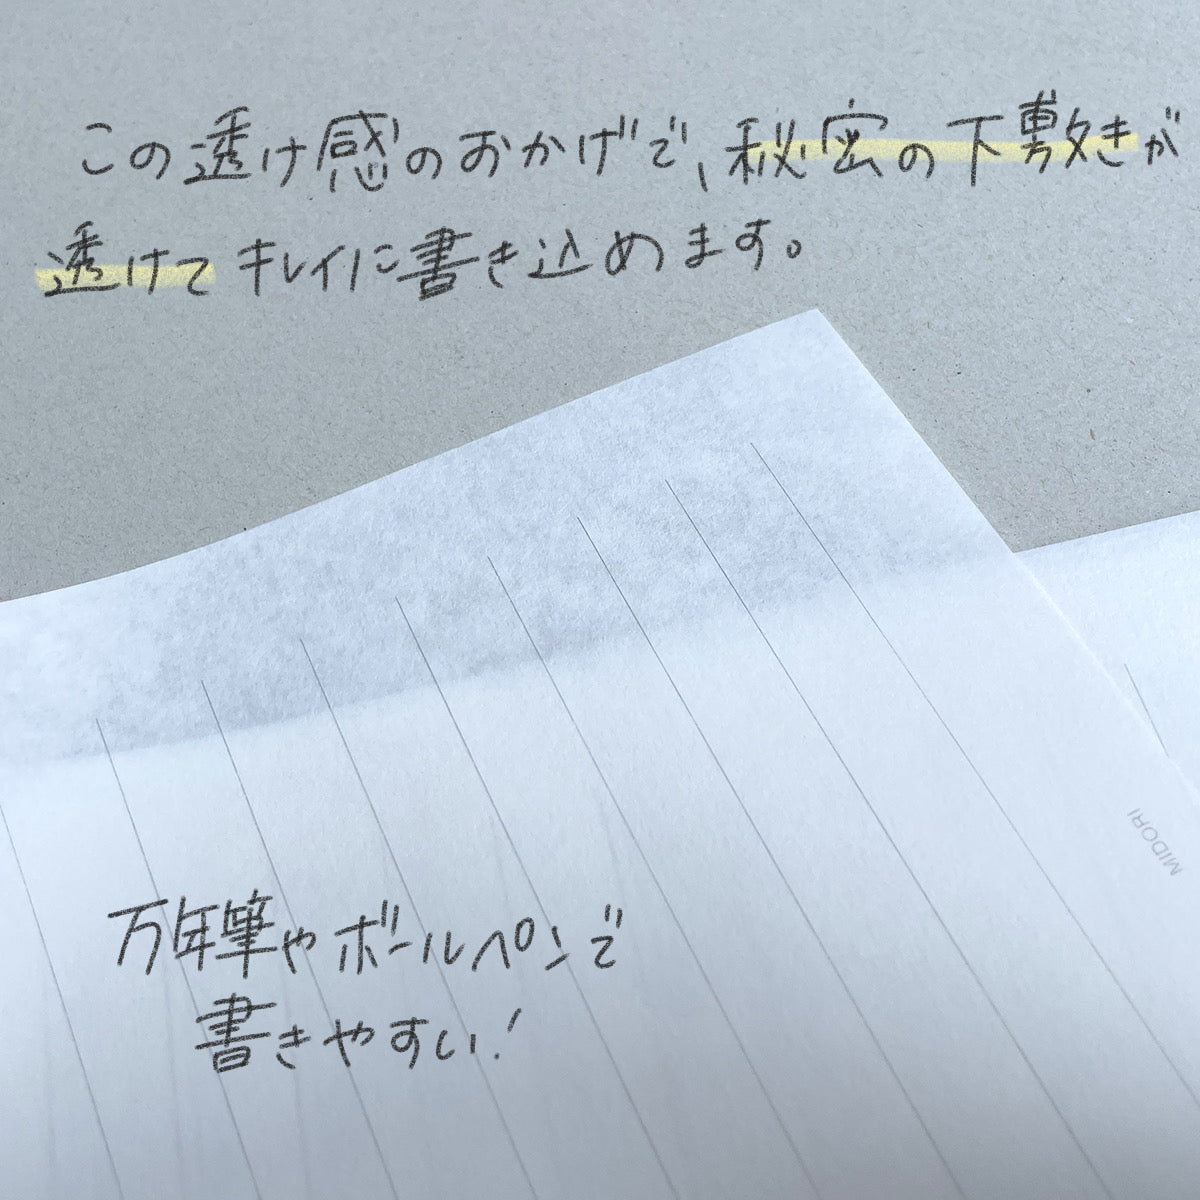 この透け感のおかげで、秘密の下敷きが
透けてキレイに書き込めます。
MIDORI
万年筆やボールペンで
書きやすい!